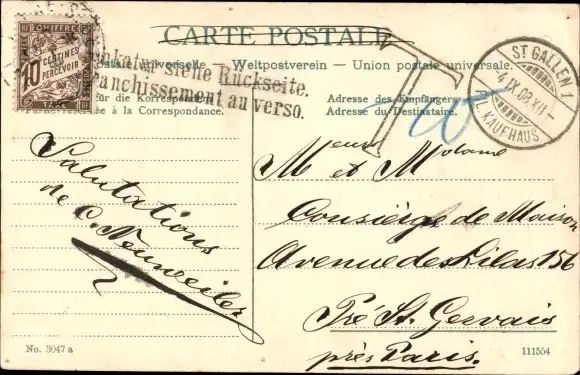 CARTE POSTALE
postale universelle. — Weltpostverein — Union postale universelle.
CHIFFRE
10 CENTIMES
A PERCEVOIR
TAXE
siehe Rückseite.
Affranchissement au verso.
T
10
ST GALLEN 1
4.IX.08.XII-
FIL. KAUFHAUS
für die Korrespondenz
à la Correspondance.
Adresse des Empfängers.
Adresse du Destinataire.
Salutations
de C. Neuweiler
Mr et Madame
Consiérge de Maison
Avenue des Lilas 156
Pré St. Gervais
près Paris.
No. 3047 a
111554